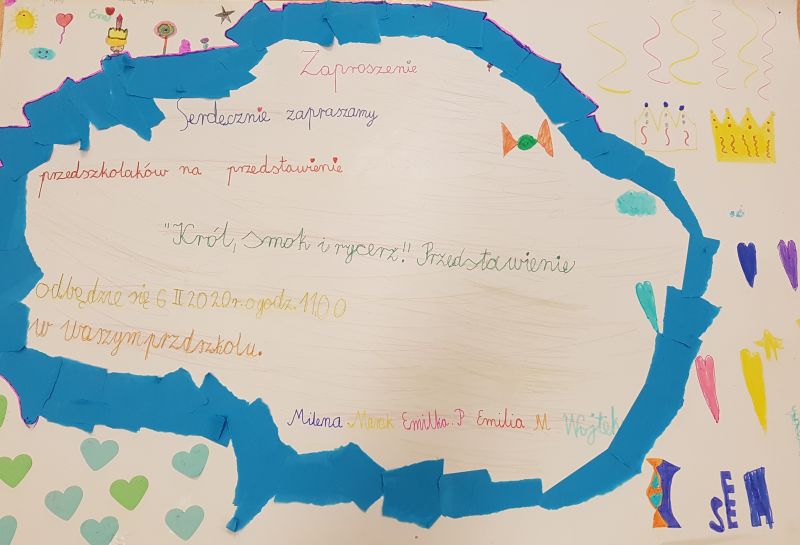 Zaproszenie
Serdecznie zapraszamy
przedszkolaków na przedstawienie
"Król, smok i rycerz!! Przedstawienie
odbędzie się 6 II 2020 r. o godz. 11 00
w waszym przdszkolu.
Milena Marek Emilka.P Emilia M Wojtek